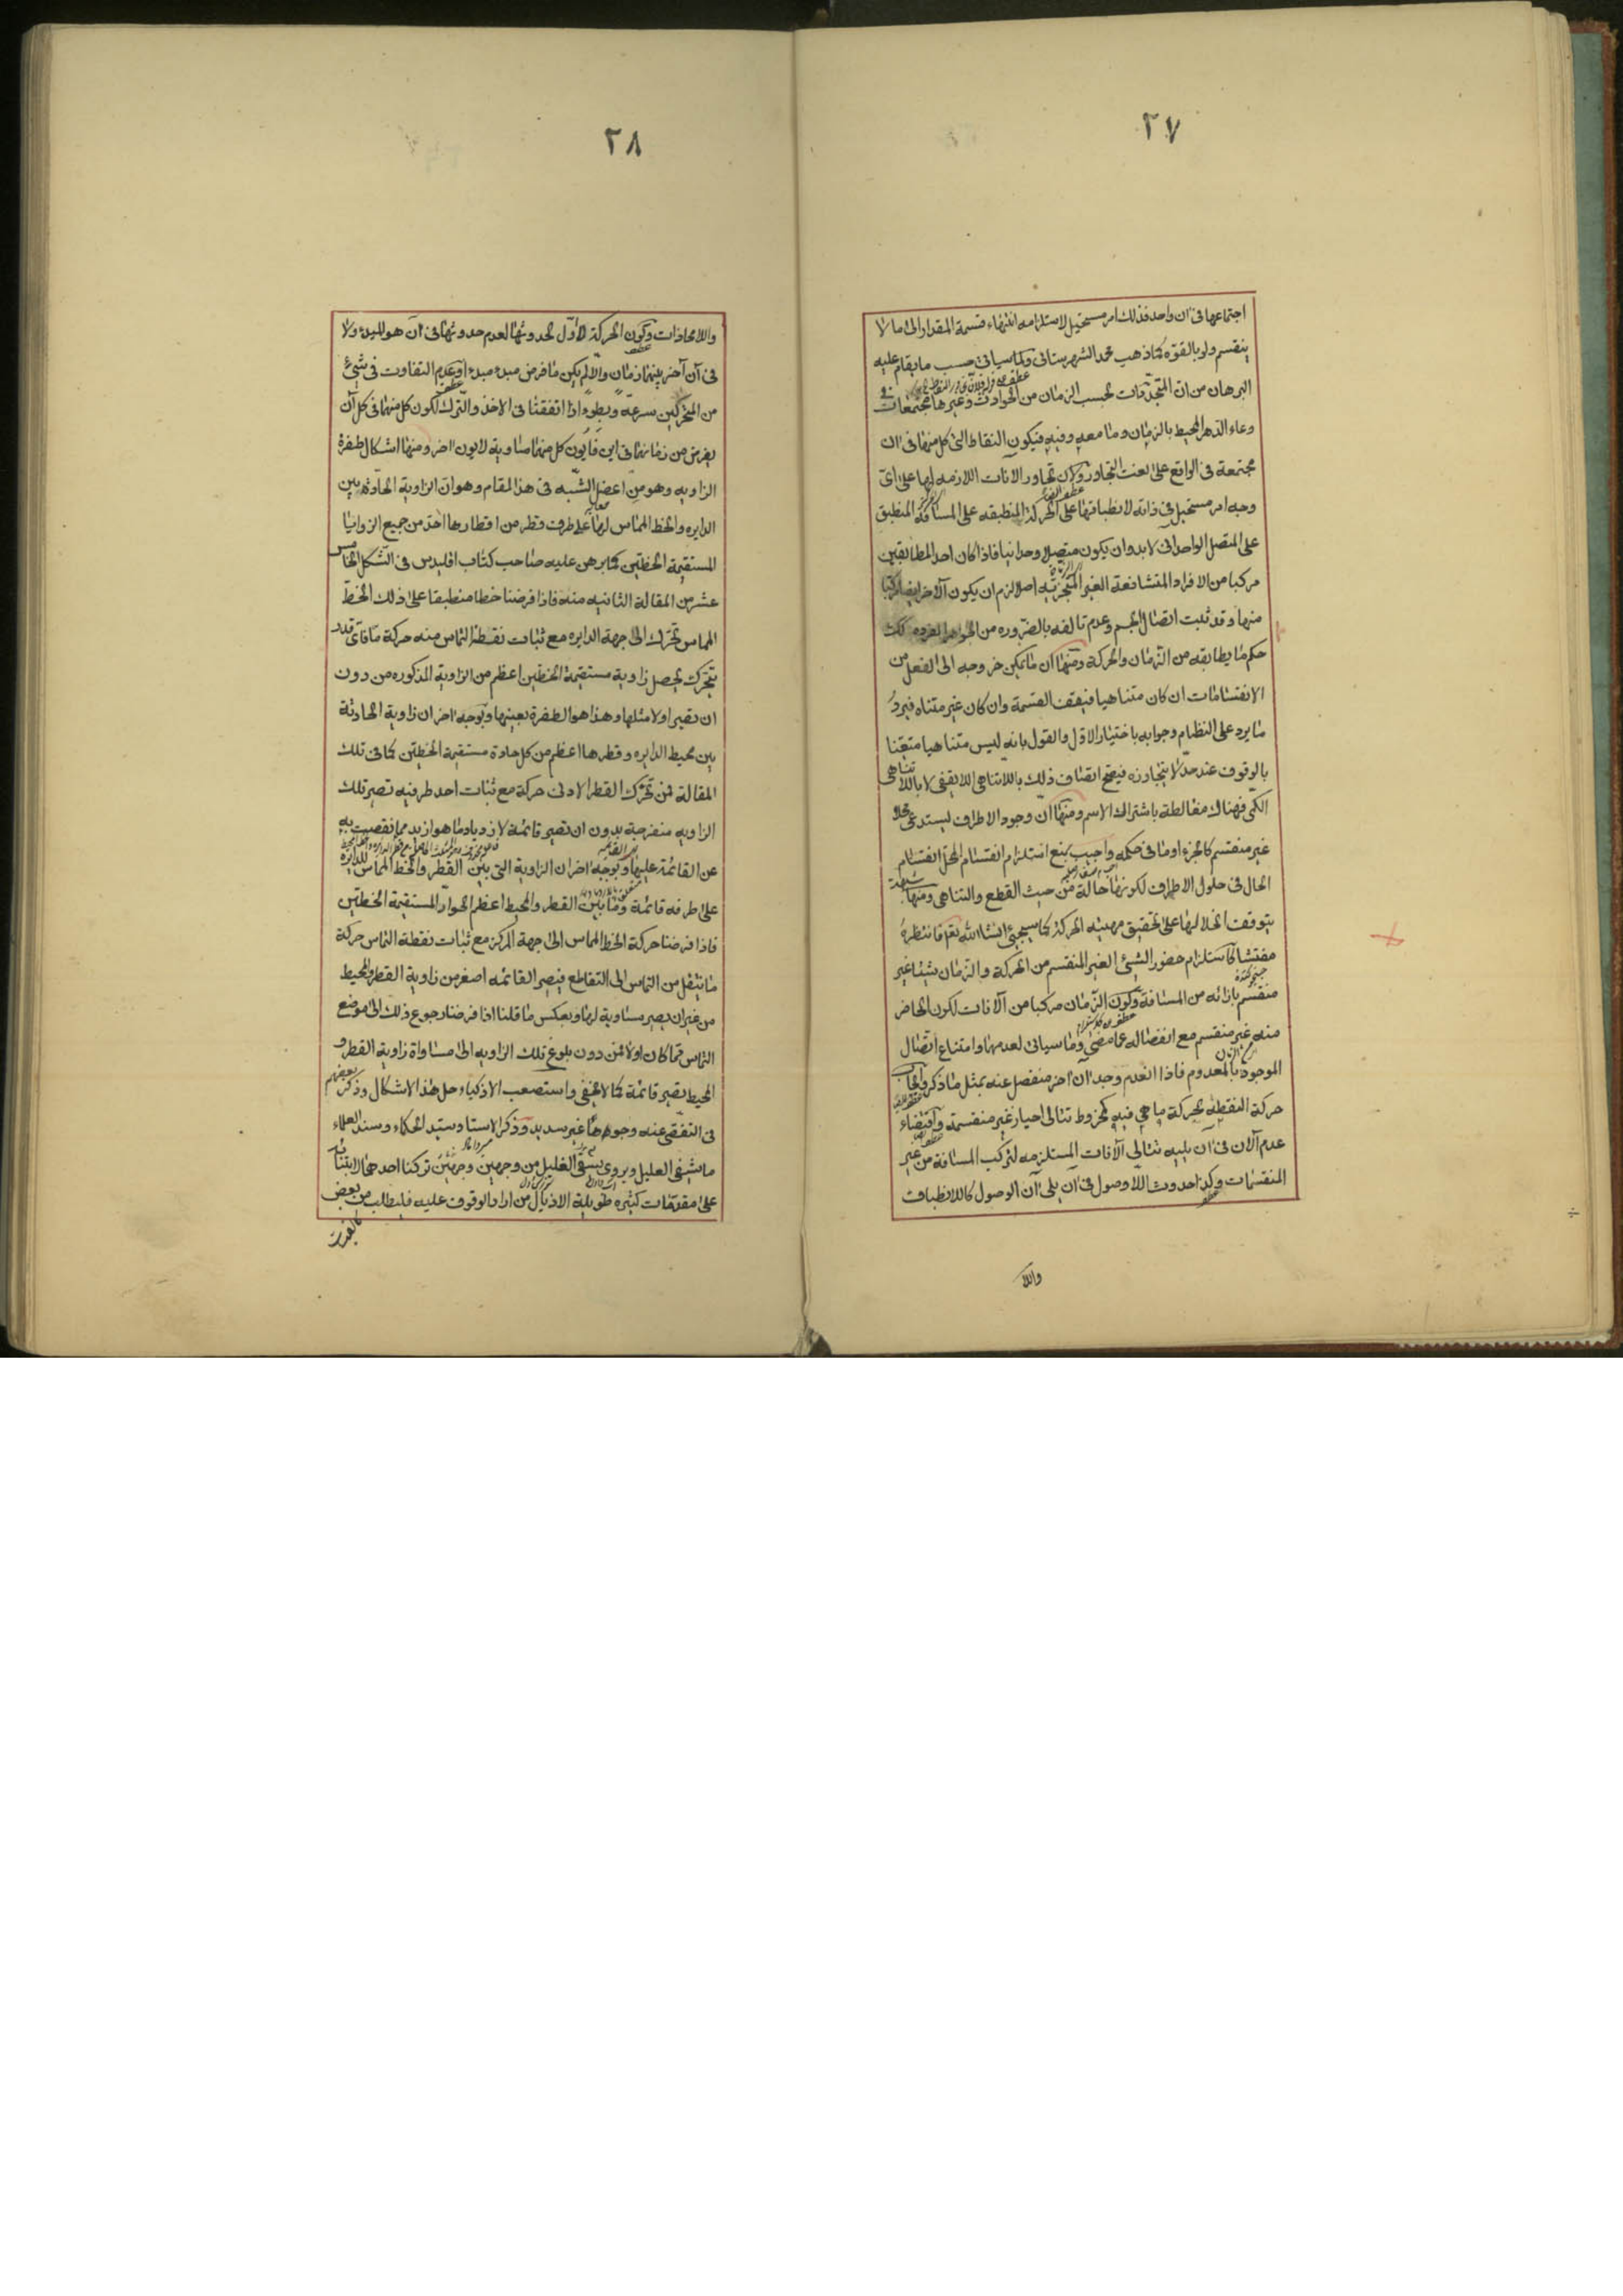 ٢٧
اجتماعها فى ان واحد فذلك امر مستحيل لاستلزامه انتهاء قسمة المقدار الى ما لا
ينقسم ولو بالقوّه كما ذهب محمد الشهرستانى وكما سيأتى حسب ما يقام عليه
البرهان من ان المتجددات بحسب الزمان من الحوادث وغيرها مجتمعات فى
وعاء الدهر المحيط بالزمان وما معه وفيه فيكون النقاط التى كل منها فى ان
مجتمعة فى الواقع على نعت التجاور ولان تجاور الآنات اللازمه لها على اىّ
وجه امر مستحيل فى ذاته لانطباقها على الحركة المنطبقه على المسافة المنطبق
على المتصل الواحدانى لا بد وان يكون متصلا وحدانيا فاذا كان احد المطابقين
مركبا من الافراد المتشافعة الغير المتجزيه اصلا لزم ان يكون الآخر ايضا مركبا
منها وقد ثبت اتصال الجسم وعدم تالفه بالضروره من الجواهر الفرده كك
حكم ما يطابقه من الزمان والحركة ومنها ان ما يمكن خروجه الى الفعل من
الانقسامات ان كان متناهيا فيقف القسمة وان كان غير متناه فيرد
ما يرد على النظام وجوابه باختيار الاول والقول بانه ليس متناهيا متعينا
بالوقوف عند حدّ لا يتجاوزه فيصح اتصاف ذلك باللاتناهى اللايقفى لا باللاتناهى
الكمى فهناك مغالطة باشتراك الاسم ومنها ان وجود الاطراف يستدعى محلا
غير منقسم كالجزء او ما فى حكمه واجيب بمنع استلزام انقسام المحل انقسام
الحال فى حلول الاطراف لكونها حالة من حيث القطع والتناهى ومنها
يتوقف انحلالها على تحقيق مهيته الحركة كما سيجيئ انشاالله تعم فانتظره
مفتشا كاستلزام حضور الشيئ الغير المنقسم من الحركة والزمان شيئا غير
منقسم بازائه من المسافة وكون الزمان مركبا من آلانات لكون الحاضر
منه غير منقسم مع انفصاله عما مضى وما سياتى لعدمهما وامتناع اتصال
الموجود بالمعدوم فاذا انعدم وجد ان اخر منفصل عنه بمثل ما ذكر وايجاب
حركة النقطة بحركة ما هى فيه كمخروط تتالى احياز غير منقسمة واقتضاء
عدم آلان فى ان يليه تتالى الآنات المستلزمه لتركب المسافة من غير
المنقسمات وكذا حدوث اللاوصول فى ان يلى ان الوصول كاللاانطباقات
واللا
٢٨
واللامحاذات وكون الحركة لا اوّل لحدوثها لعدم حدوثها فى ان هو للمبدء ولا
فى آن آخر بينهما زمان والّا لم يكن ما فرض مبدء مبدء او عدم التفاوت فى شيئ
من المتحركين سرعة وبطوءً اذا اتفقتا فى الاخذ والترك لكون كل منهما فى كل آن
يفرض من زمانهما فى اين فايون كل منهما مساوية لايون اخر ومنها اشكال طفرة
الزاويه وهو من اعضل الشبه فى هذا المقام وهو ان الزاوية الحادثة بين
الدايره والخط المماس لها على طرف قطر من اقطارها احدّ من جميع الزوايا
المستقيمة الخطين كما برهن عليه صاحب كتاب اقليدس فى الشكل الخامس
عشر من المقالة الثانيه منه فاذا فرضنا خطا منطبقا على ذلك الخط
المماس تحرك الى جهة الدايره مع ثبات نقطة التماس منه حركة ما فاىّ قدر
يتحرك يحصل زاوية مستقيمة الخطين اعظم من الزاوية المذكوره من دون
ان تصير اولا مثلها وهذا هو الطفرة بعينها وبوجه اخر ان زاوية الحادثة
بين محيط الدايره وقطرها اعظم من كل حادة مستقيمة الخطين كما فى تلك
المقالة فمن تحرك القطر لادنى حركة مع ثبات احد طرفيه تصير تلك
الزاويه منفرجة بدون ان تصير قائمة لازدياد ما هو ازيد مما نقصت به
عن القائمة عليها وبوجه اخر ان الزاوية التى بين القطر والخط المماس للدايرة
على طرفه قائمة وما بين القطر والمحيط اعظم الحوادّ المستقيمة الخطين
فاذا فرضنا حركة الخط المماس الى جهة المركز مع ثبات نقطة التماس حركة
ما ينتقل من التماس الى التقاطع فيصير القائمه اصغر من زاوية القطر والمحيط
من غير ان يصير مساوية لها وبعكس ما قلنا اذا فرضنا رجوع ذلك الى موضع
التماس كما كان اولا فمن دون بلوغ تلك الزاويه الى مساواة زاوية القطر و
المحيط تصير قائمة كما لا يخفى واستصعب الاذكياء حل هذا الاشكال وذكر بعضهم
فى التفصى عنه وجوها غير سديد وذكر الاستاد سيد الحكماء وسند العلماء
ما يشفى العليل ويروى بسقى الغليل من وجهين وجيهين تركنا احدهما لابتنائه
على مقدمات كثيره طويلة الاذيال من اراد الوقوف عليه فليطلب من بعض